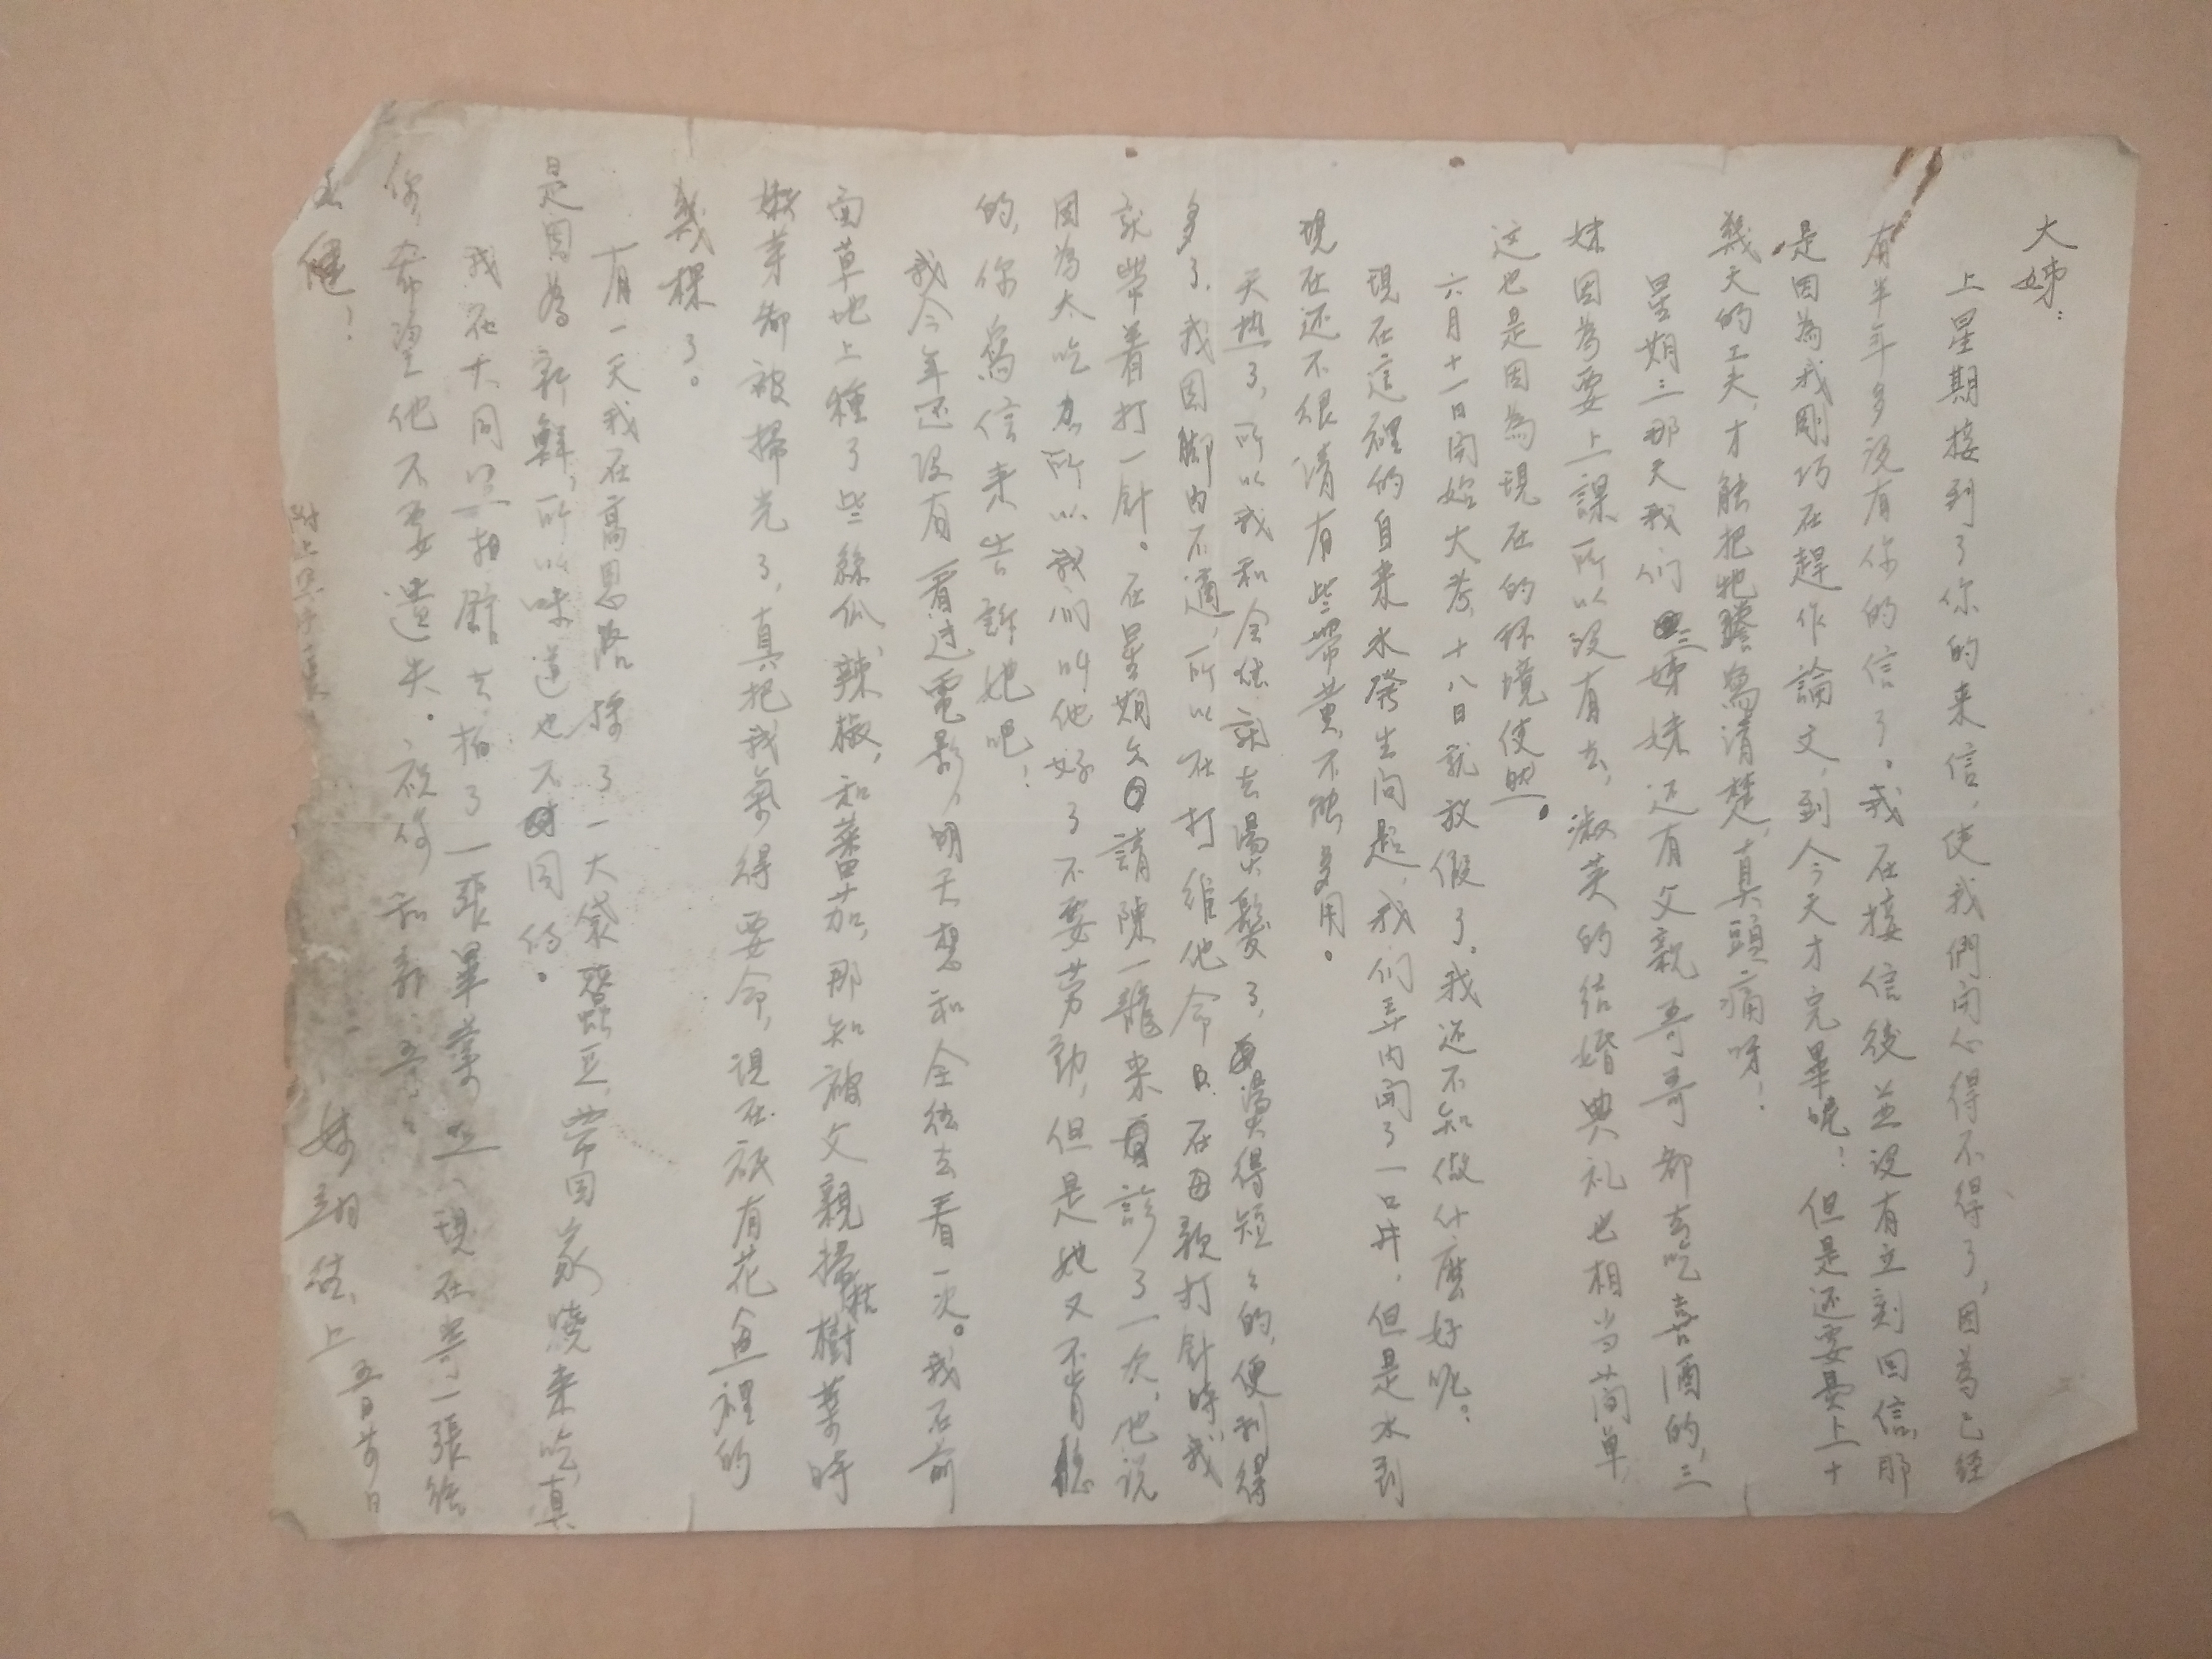 大姊：
上星期接到了你的来信，使我們開心得不得了，因為已經
有半年多没有你的信了。我在接信後並没有立刻回信，那
是因為我剛巧在趕作論文，到今天才完畢呢！但是还要費上十
幾天的工夫，才能把牠謄寫清楚，真頭痛呀！
星期三那天我们三姊妹还有父親哥哥都去吃喜酒的，三
妹因為要上課所以没有去，淑英的结婚典礼也相当简单，
这也是因為現在的环境使然。
六月十一日開始大考，十八日就放假了。我还不知做什麼好呢？
現在這裡的自来水發生问题，我们弄内開了一口井，但是水到
現在还不很清有些帶黄，不能多用。
天热了，所以我和全佐就去燙髮了，燙得短々的，便利得
多了，我因脚内不適，所以在打維他命B，在母親打針時，我
就帶着打一針。在星期六請陳一龍来看診了一次，他说
因為太吃力所以我们叫她好了不要劳動，但是她又不肯聽
的，你寫信来告訴她吧！
我今年还没有看过電影，明天想和全佐去看一次。我在前
面草地上種了些絲瓜，辣椒，和蕃茄，那知被父親掃枯樹葉時
嫩芽都被掃光了，真把我氣得要命，現在祇有花盆裡的
幾棵了。
有一天我在高恩路採了一大袋蠶豆，帶回家燒来吃，真
是因為新鮮，所以味道也不同的。
我在大同照相館去拍了一張畢業照，現在寄一張給
你，希望他不要遺失。祝你和
健！
妹翊佐上
五月廿日